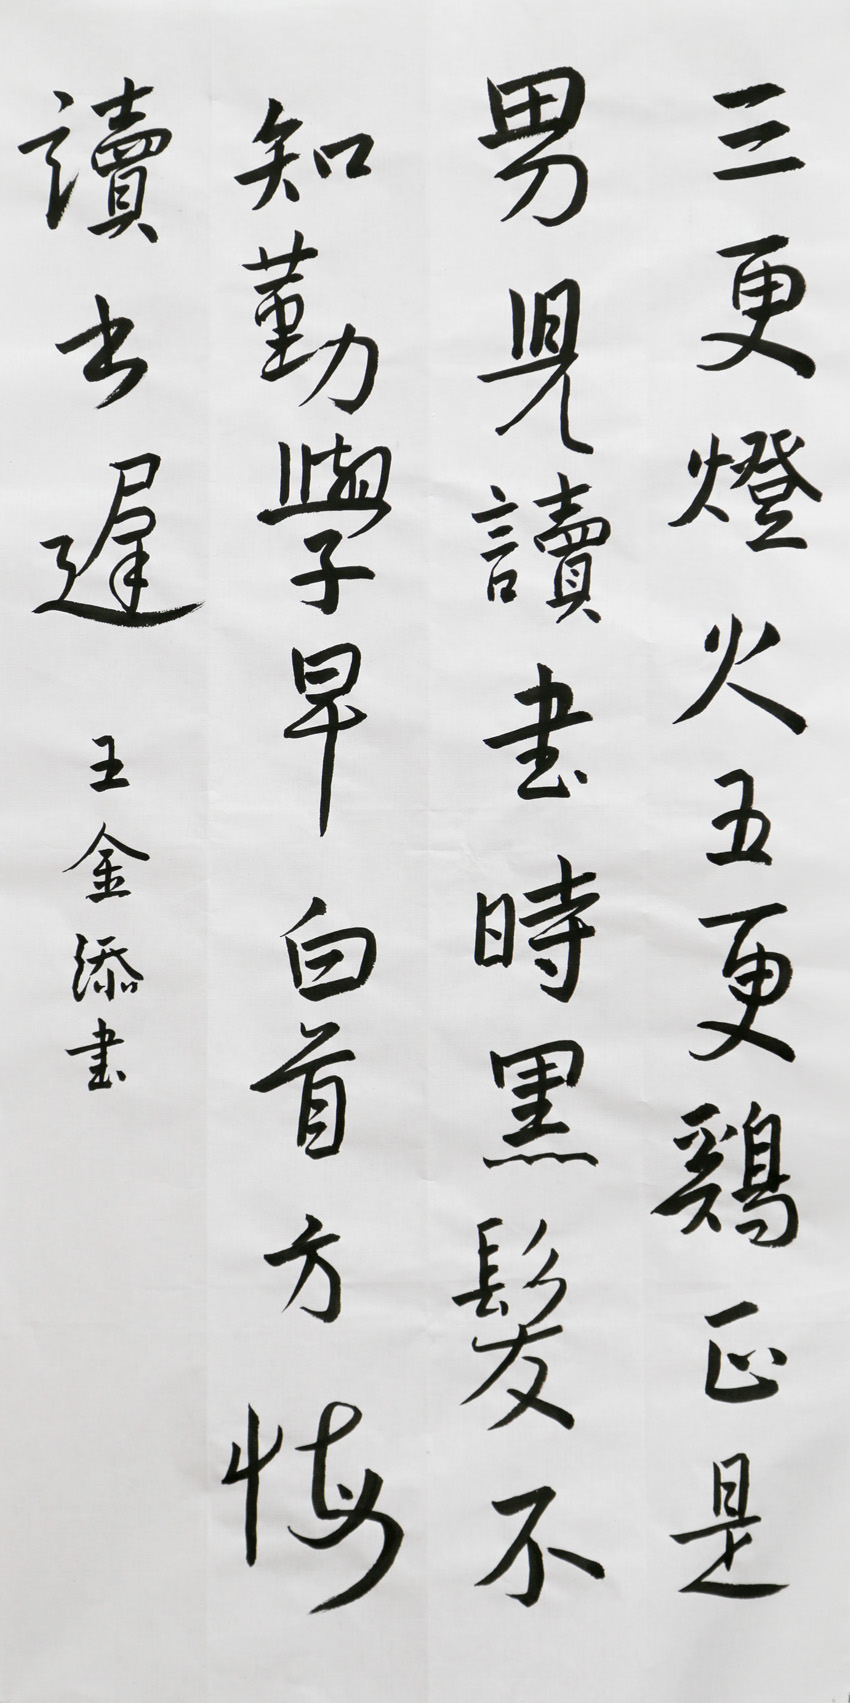 三更燈火五更鷄正是
男兒讀書時黑髮不
知勤學早白首方悔
讀书遲
王金添書